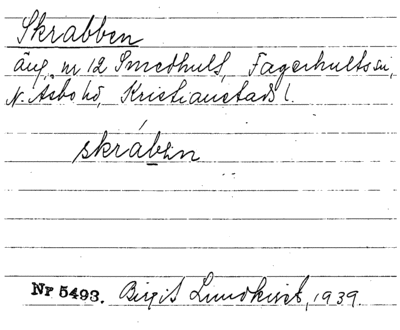 Skrabben
äng, nr 12 Smedhult, Fagerhults sn,
N. Åsbo hd, Kristianstads l.
skráben
Nr 5493. Birgit Lundkvist, 1939.